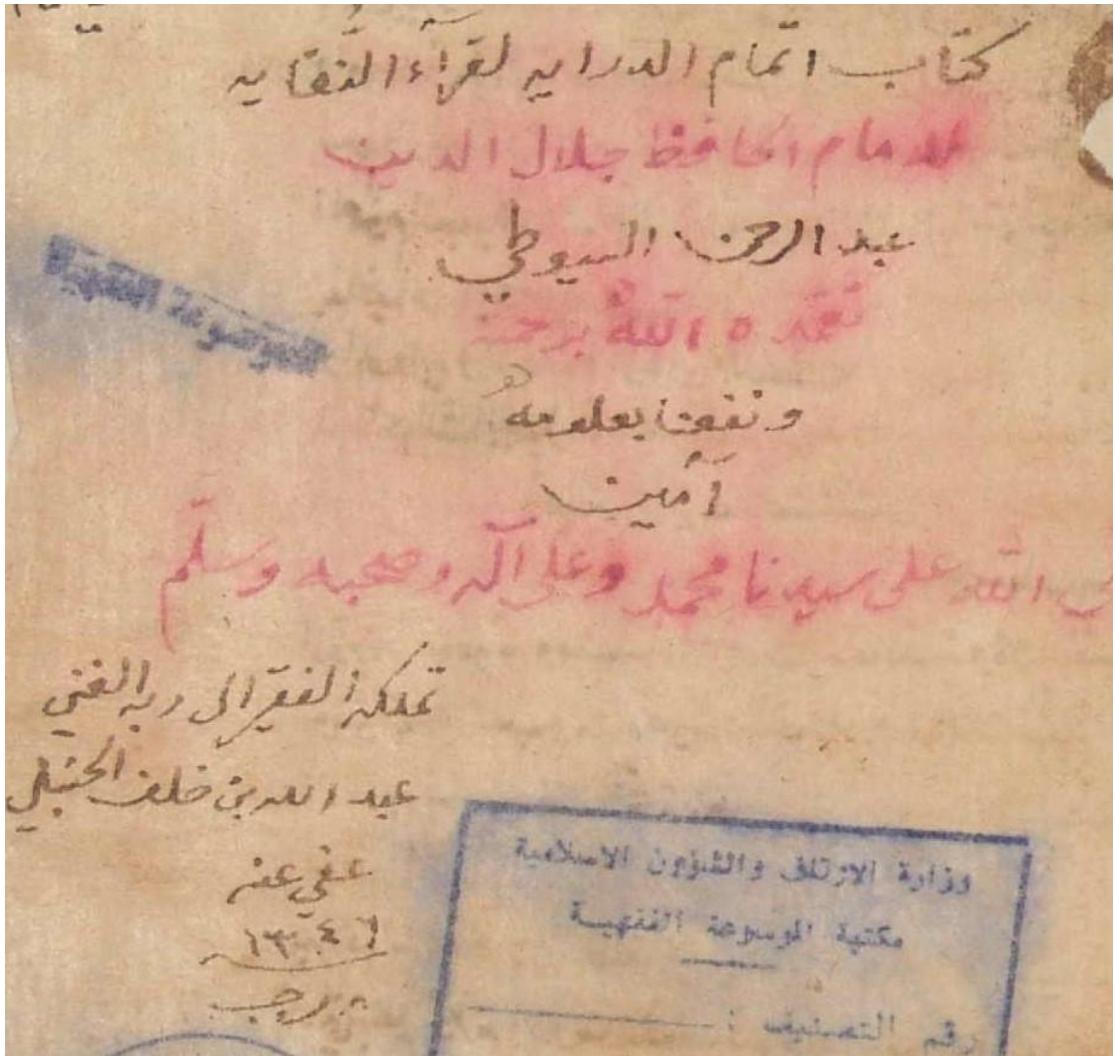 كتاب اتمام الدرايه لقرآء النقايه
للامام الحافظ جلال الدين
عبد الرحمن السيوطي
تغمده الله برحمته
ونفعنا بعلومه
آمين
الله على سيدنا محمد وعلى آله وصحبه وسلم
الموسوعة الفقهية
تملكه الفقير الى ربه الغني
عبد الله بن خلف الحنبلي
عفي عنه
١٣٤٦
رجب
وزارة الاوقاف والشؤون الاسلامية
مكتبة الموسوعة الفقهية
رقم التصنيف :